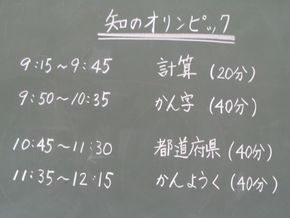 知のオリンピック
9:15～9:45 計算(20分)
9:50～10:35 かん字(40分)
10:45～11:30 都道府県(40分)
11:35～12:15 かんようく(40分)